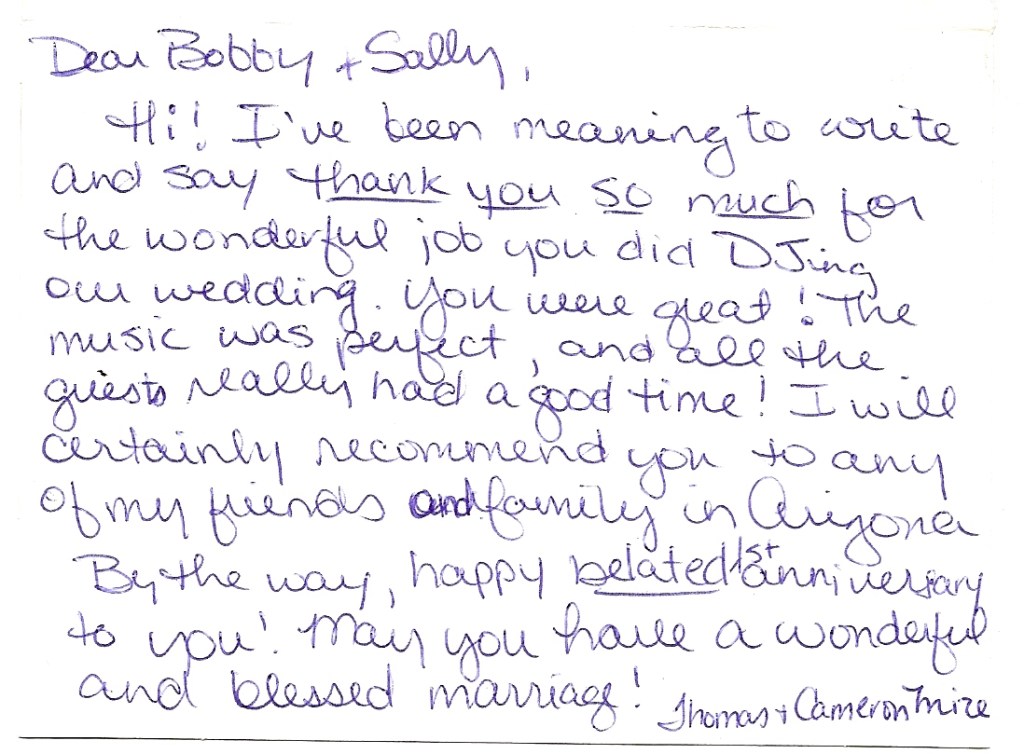 Dear Bobby + Sally,
Hi! I've been meaning to write
and say thank you so much for
the wonderful job you did DJing
our wedding. You were great! The
music was perfect, and all the
guests really had a good time! I will
certainly recommend you to any
of my friends and family in Arizona
By the way, happy belated 1st anniversary
to you! May you have a wonderful
and blessed marriage!
Thomas + Cameron Mize